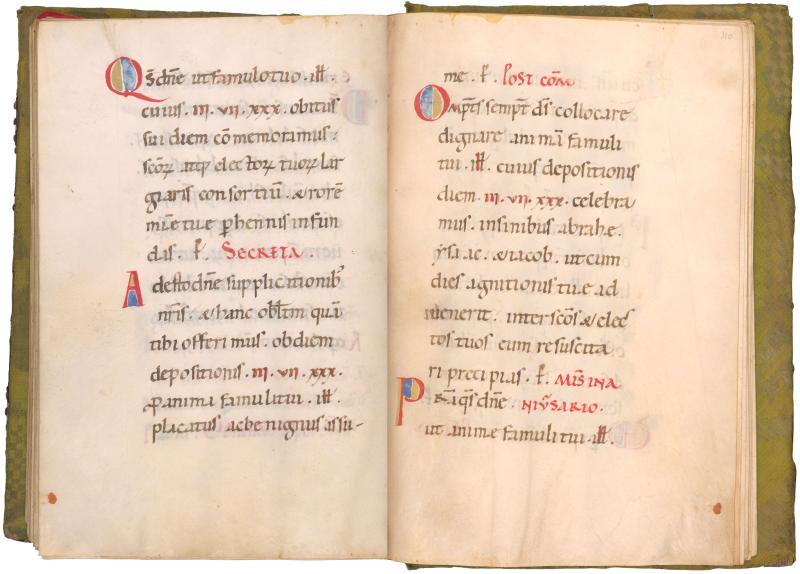 Qs dne ut famulo tuo . ill .
cuius . III . VII . XXX . obitus
sui diem commemoramus :
scoꝝ atq electoꝝ tuoꝝ lar
giaris consortiū . & rorē
mię tuę phennis infun
das . ꝑ . SECRETA .
Adesto dne supplicationib'
nris . & hanc oblem quā
tibi offerimus . ob diem
depositionis . III . VII . XXX .
p anima famuli tui . ill .
placatus ac benignus assu-
110
me . ꝑ . POST COM
Omps sempt ds collocare
dignare animā famuli
tui . ill . cuius depositionis
diem . III . VII . XXX . celebra
mus . in sinibus abrahę .
ysaac . & iacob . ut cum
dies agnitionis tuę ad
uenerit . inter scos & elec
tos tuos eum resuscita
ri precipias . ꝑ . MIS IN A
Pra qs dne . NIVSARIO .
ut animę famuli tui . ill .